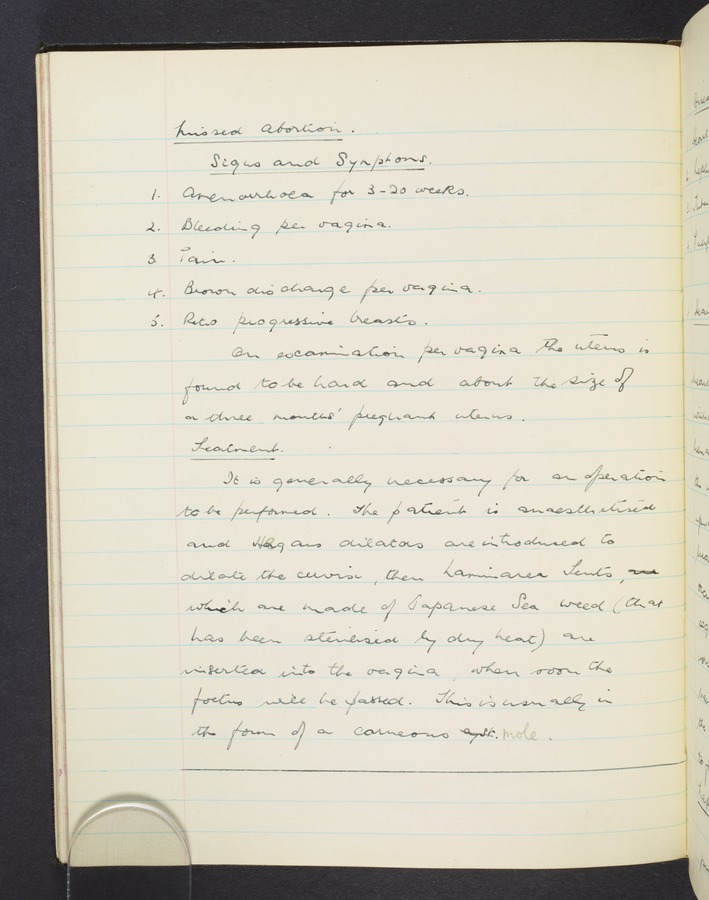 Missed Abortion.
Signs and Symptoms.
1. Amenorrhoea for 3-20 weeks.
2. Bleeding per vagina.
3 Pain.
4. Brown discharge per vagina.
5. Retro progressive breasts.
On examination per vagina the uterus is
found to be hard and about the size of
a three months' pregnant uterus.
Treatment.
It is generally necessary for an operation
to be performed. The patient is anaesthetised
and Hegars dilators are introduced to
dilate the cervix, then Laminarea Tents,
which are made of Japanese Sea weed (that
has been sterilised by dry heat) are
inserted into the vagina, when soon the
foetus will be passed. This is usually in
the form of a carneous mole.